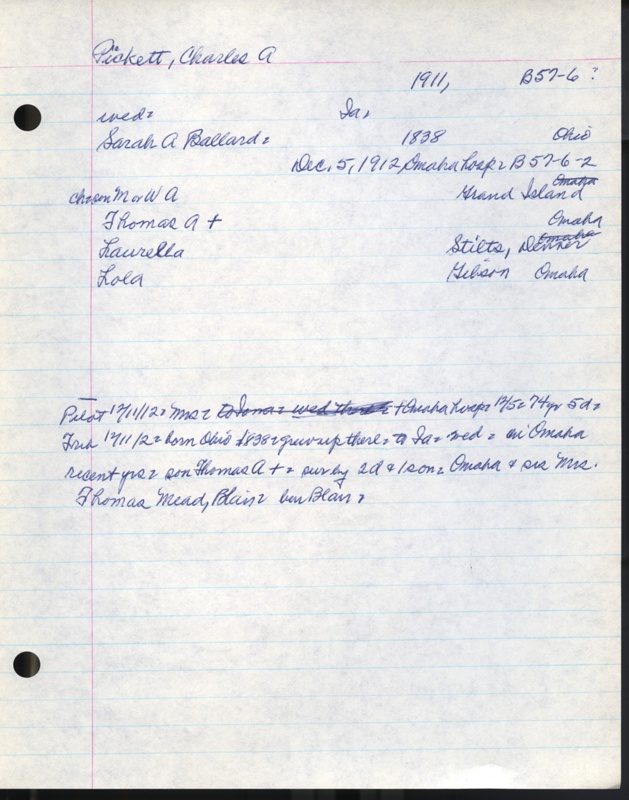 Pickett, Charles A
1911, B57-6 ?
wed= Ia,
Sarah A Ballard= 1838 Ohio
Dec. 5, 1912, Omaha hosp= B57-6-2
ch=son M or W A Grand Island Omaha
Thomas A + Omaha
Laurella Stilts, Denver Omaha
Lola Gibson Omaha
Pilot 12/11/12= Mrs= to Iowa= wed there= +Omaha hosp= 12/5= 74yr 5d=
Trib 12/11/12=born Ohio 1838=grew up there= to Ia= wed= in Omaha
recent yrs= son Thomas A += sur by 2d & 1 son= Omaha & sis Mrs.
Thomas Mead, Blair= bur Blair=